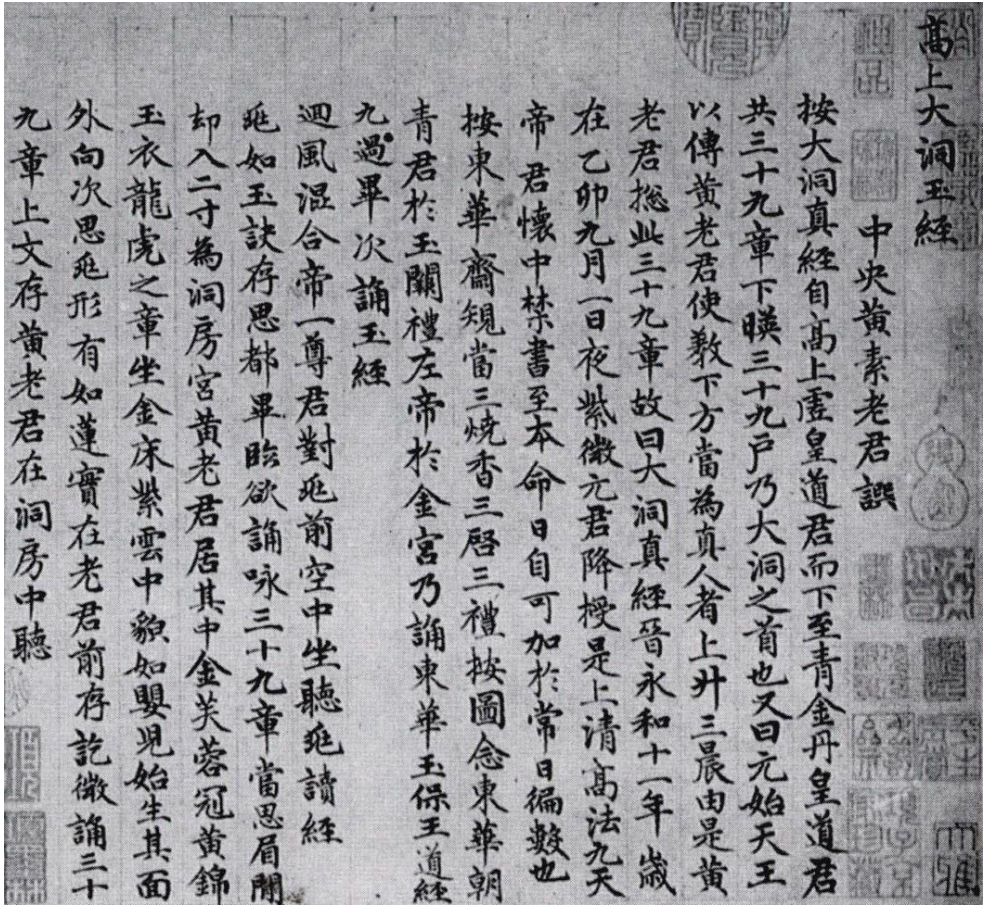 高上大洞玉經
中央黄素老君譔
按大洞真經自高上虛皇道君而下至青金丹皇道君
共三十九章下暎三十九戶乃大洞之首也又曰元始天王
以傳黄老君使敎下方當為真人者上升三晨由是黄
老君揔此三十九章故曰大洞真經晉永和十一年歲
在乙卯九月一日夜紫微元君降授是上清高法九天
帝君懷中禁書至本命日自可加於常日徧數也
按東華齋規當三燒香三啓三禮按圖念東華朝
青君於玉闕禮左帝於金宮乃誦東華玉保王道經
九過畢次誦玉經
迴風混合帝一尊君對兆前空中坐聽兆讀經
兆如玉訣存思都畢臨欲誦咏三十九章當思眉間
却入二寸為洞房宮黄老君居其中金芙蓉冠黄錦
玉衣龍虎之章坐金床紫雲中貌如嬰兒始生其面
外向次思兆形有如蓮實在老君前存訖微誦三十
九章上文存黄老君在洞房中聽
神品